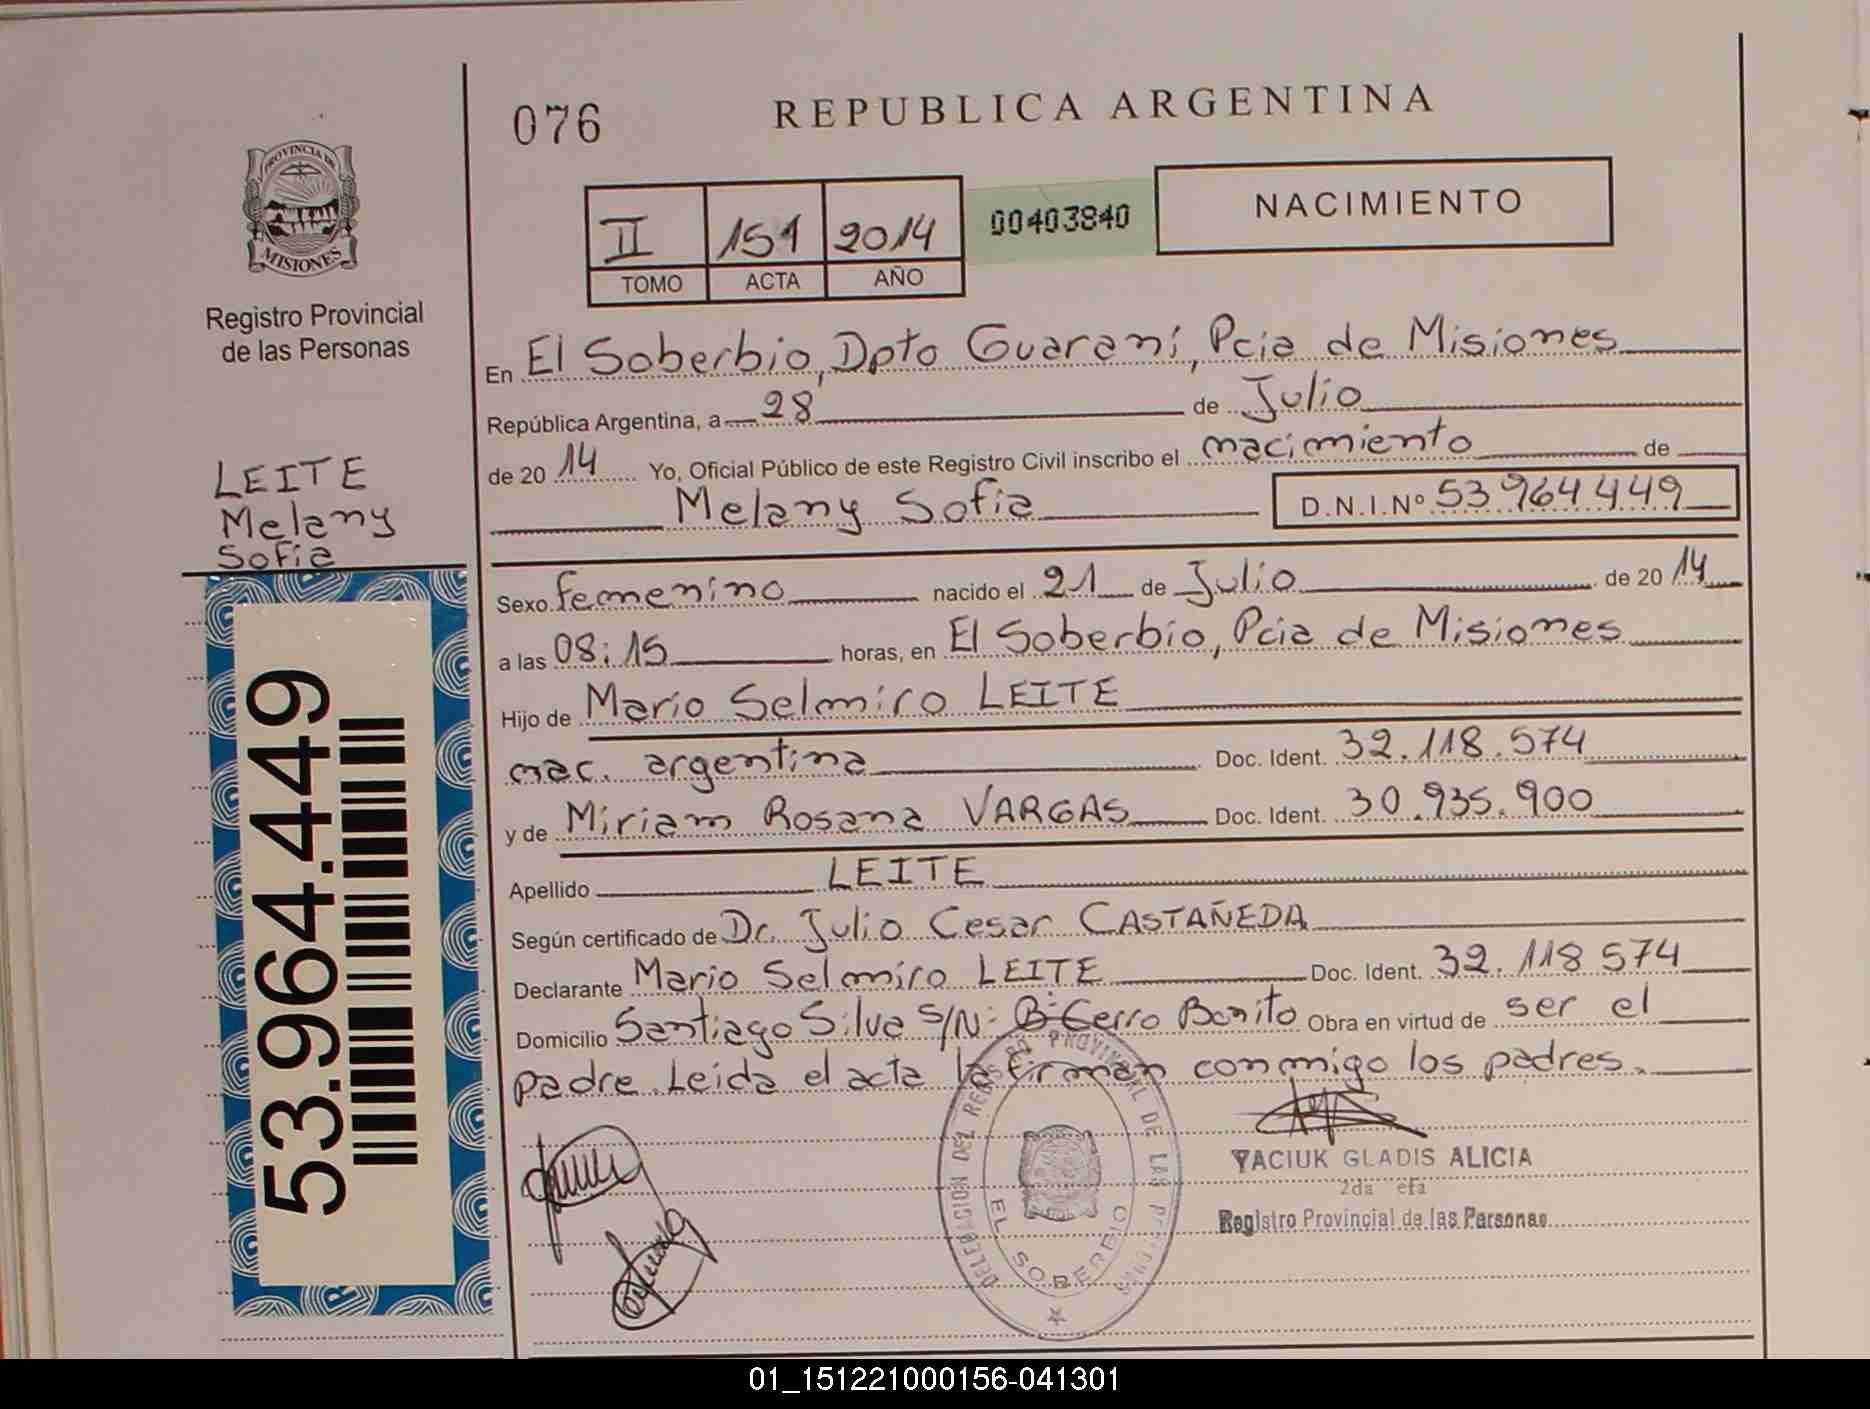 076
REPUBLICA ARGENTINA
PROVINCIA DE
MISIONES
Registro Provincial
de las Personas
II 151 2014
TOMO ACTA AÑO
00403840
NACIMIENTO
En El Soberbio, Dpto Guaraní, Pcia de Misiones
República Argentina, a 28 de Julio
de 20 14 Yo, Oficial Público de este Registro Civil inscribo el nacimiento de
Melany Sofia D.N.I.Nº 53 964 449
LEITE
Melany
Sofia
53.964.449
Sexo femenino nacido el 21 de Julio de 20 14
a las 08:15 horas, en El Soberbio, Pcia de Misiones
Hijo de Mario Selmiro LEITE
nac. argentina Doc. Ident. 32.118.574
y de Miriam Rosana VARGAS Doc. Ident. 30.935.900
Apellido LEITE
Según certificado de Dr. Julio Cesar CASTAÑEDA
Declarante Mario Selmiro LEITE Doc. Ident. 32.118 574
Domicilio Santiago Silva S/N: Bº Cerro Bonito Obra en virtud de ser el
padre. Leida el acta la firman conmigo los padres.
DELEGACION DEL REG PROVINCIAL DE LAS
EL SOBERBIO
YACIUK GLADIS ALICIA
2da efa
Registro Provincial de las Personas
01_151221000156-041301